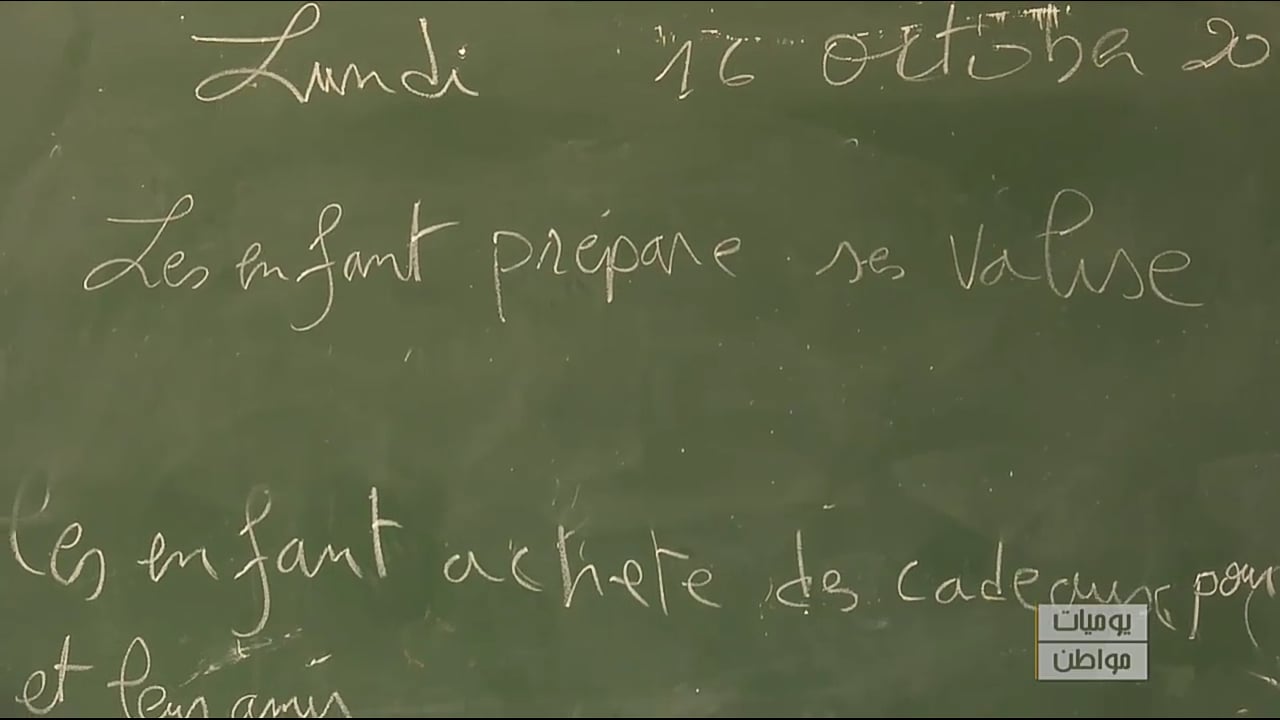 Lundi 16 octobre 20
Les enfant prépare ses valise
les enfant achete des cadeaux pour
et leurs amis
يوميات
مواطن